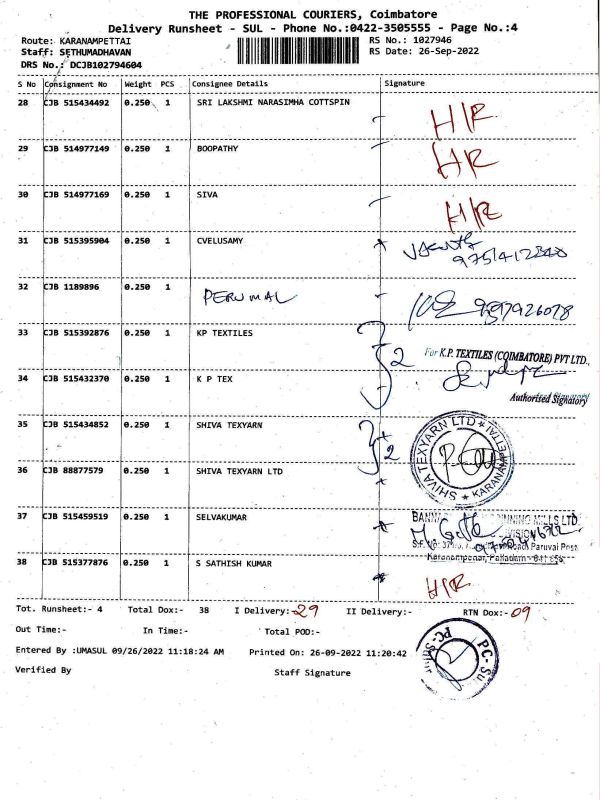 THE PROFESSIONAL COURIERS, Coimbatore
Delivery Runsheet - SUL - Phone No.:0422-3505555 - Page No.:4
Route: KARANAMPETTAI
RS No.: 1027946
Staff: SETHUMADHAVAN
RS Date: 26-Sep-2022
DRS No.: DCJB102794604
S No Consignment No Weight PCS Consignee Details Signature
28 CJB 515434492 0.250 1 SRI LAKSHMI NARASIMHA COTTSPIN H/R
29 CJB 514977149 0.250 1 BOOPATHY H/R
30 CJB 514977169 0.250 1 SIVA H/R
31 CJB 515395904 0.250 1 CVELUSAMY
32 CJB 1189896 0.250 1 PERUMAL
33 CJB 515392876 0.250 1 KP TEXTILES 2 For K.P. TEXTILES (COIMBATORE) PVT LTD.,
34 CJB 515432370 0.250 1 K P TEX
Authorised Signatory
35 CJB 515434852 0.250 1 SHIVA TEXYARN 2 SHIVA TEXYARN LTD ★ KARANAMPETTAI ★
36 CJB 88877579 0.250 1 SHIVA TEXYARN LTD
37 CJB 515459519 0.250 1 SELVAKUMAR
SPINNING MILLS LTD
DIVISION
Paruvai Post
Karanampettai, Palladam - 641 658
38 CJB 515377876 0.250 1 S SATHISH KUMAR H/R
Tot. Runsheet:- 4 Total Dox:- 38 I Delivery:-29 II Delivery:- RTN Dox:-09
Out Time:- In Time:- Total POD:-
Entered By :UMASUL 09/26/2022 11:18:24 AM Printed On: 26-09-2022 11:20:42
Verified By Staff Signature
PC-Sul